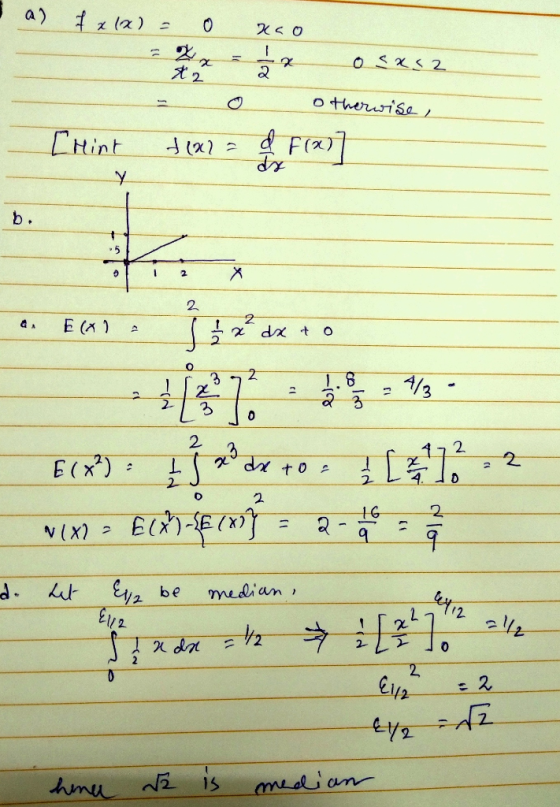 a) f x(x) = 0 x<0
= 2/4₂ x = 1/2 x 0 ≤ x ≤ 2
= 0 otherwise,
[Hint f(x) = d/dx F(x)]
Y
b.
1
.5
0 1 2 X
c. E(x) = ∫₀² 1/2 x² dx + 0
= 1/2 [x³/3]₀² = 1/2 · 8/3 = 4/3
E(x²) = 1/2 ∫₀² x³ dx + 0 = 1/2 [x⁴/4]₀² = 2
V(x) = E(x²)-{E(x)}² = 2 - 16/9 = 2/9
d. Let ξ1/2 be median,
∫₀^ξ1/2 1/2 x dx = 1/2 ⇒ 1/2 [x²/2]₀^ξ1/2 = 1/2
ξ1/2² = 2
ξ1/2 = √2
hence √2 is median